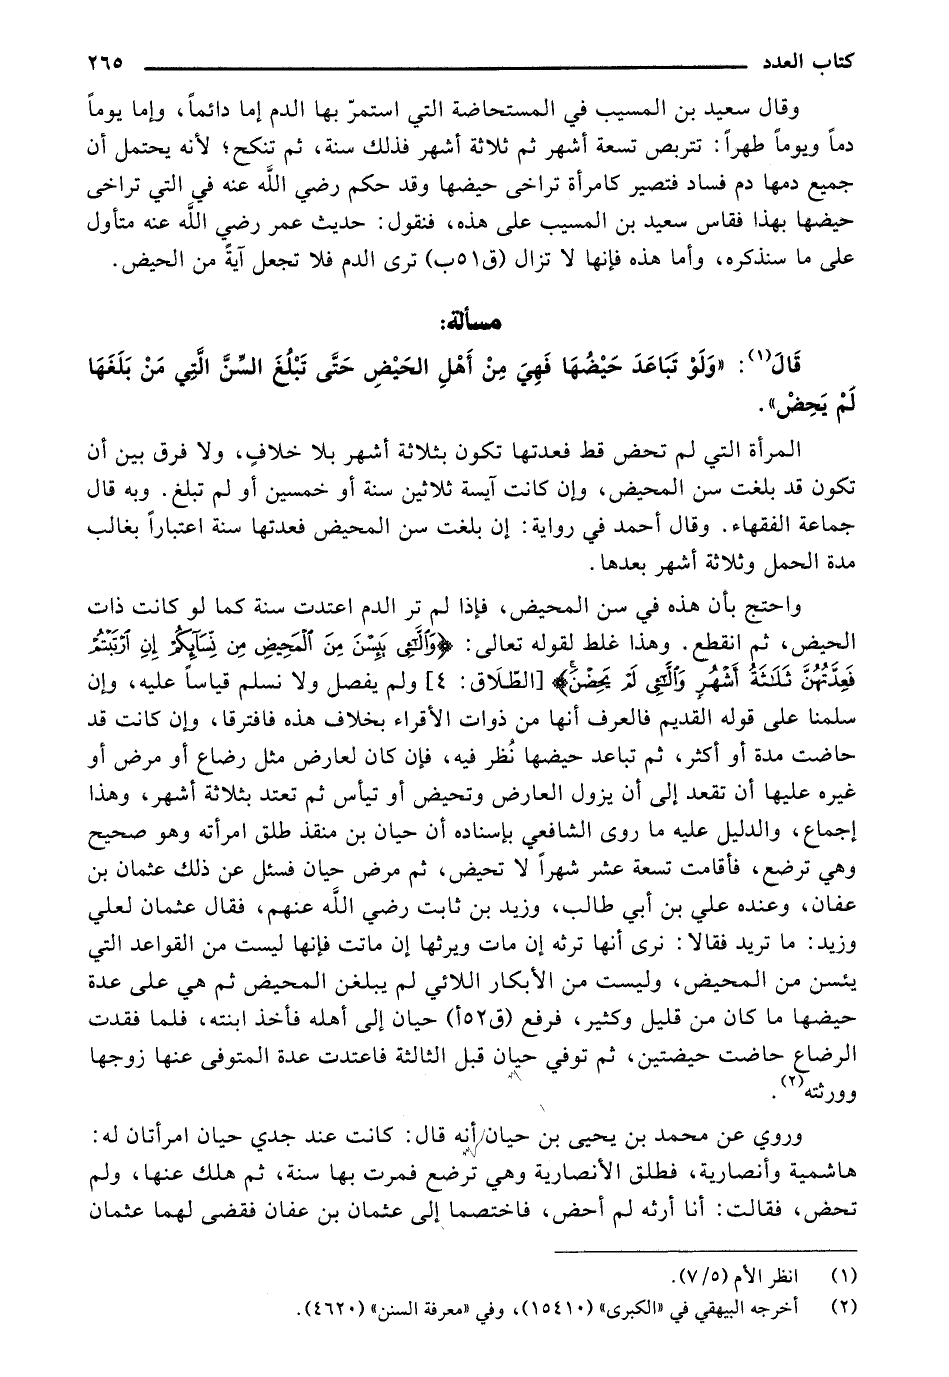 كتاب العدد ٢٦٥
وقال سعيد بن المسيب في المستحاضة التي استمرّ بها الدم إما دائماً، وإما يوماً
دماً ويوماً طهراً: تتربص تسعة أشهر ثم ثلاثة أشهر فذلك سنة، ثم تنكح؛ لأنه يحتمل أن
جميع دمها دم فساد فتصير كامرأة تراخى حيضها وقد حكم رضي اللَّه عنه في التي تراخى
حيضها بهذا فقاس سعيد بن المسيب على هذه، فنقول: حديث عمر رضي اللَّه عنه متأول
على ما سنذكره، وأما هذه فإنها لا تزال (ق٥١ب) ترى الدم فلا تجعل آيةً من الحيض.
مسألة:
قَالَ(١): «وَلَوْ تَبَاعَدَ حَيْضُهَا فَهِيَ مِنْ أَهْلِ الحَيْضِ حَتَّى تَبْلُغَ السِّنَّ الَّتِي مَنْ بَلَغَهَا
لَمْ يَحِضْ».
المرأة التي لم تحض قط فعدتها تكون بثلاثة أشهر بلا خلافٍ، ولا فرق بين أن
تكون قد بلغت سن المحيض، وإن كانت آيسة ثلاثين سنة أو خمسين أو لم تبلغ. وبه قال
جماعة الفقهاء. وقال أحمد في رواية: إن بلغت سن المحيض فعدتها سنة اعتباراً بغالب
مدة الحمل وثلاثة أشهر بعدها.
واحتج بأن هذه في سن المحيض، فإذا لم تر الدم اعتدت سنة كما لو كانت ذات
الحيض، ثم انقطع. وهذا غلط لقوله تعالى: ﴿وَٱلَّٰٓـِٔي يَئِسْنَ مِنَ ٱلْمَحِيضِ مِن نِّسَآئِكُمْ إِنِ ٱرْتَبْتُمْ
فَعِدَّتُهُنَّ ثَلَٰثَةُ أَشْهُرٍ وَٱلَّٰٓـِٔي لَمْ يَحِضْنَ﴾ [الطّلَاق: ٤] ولم يفصل ولا نسلم قياساً عليه، وإن
سلمنا على قوله القديم فالعرف أنها من ذوات الأقراء بخلاف هذه فافترقا، وإن كانت قد
حاضت مدة أو أكثر، ثم تباعد حيضها نُظر فيه، فإن كان لعارض مثل رضاع أو مرض أو
غيره عليها أن تقعد إلى أن يزول العارض وتحيض أو تيأس ثم تعتد بثلاثة أشهر، وهذا
إجماع، والدليل عليه ما روى الشافعي بإسناده أن حيان بن منقذ طلق امرأته وهو صحيح
وهي ترضع، فأقامت تسعة عشر شهراً لا تحيض، ثم مرض حيان فسئل عن ذلك عثمان بن
عفان، وعنده علي بن أبي طالب، وزيد بن ثابت رضي اللَّه عنهم، فقال عثمان لعلي
وزيد: ما تريد فقالا: نرى أنها ترثه إن مات ويرثها إن ماتت فإنها ليست من القواعد التي
يئسن من المحيض، وليست من الأبكار اللائي لم يبلغن المحيض ثم هي على عدة
حيضها ما كان من قليل وكثير، فرفع (ق٥٢أ) حيان إلى أهله فأخذ ابنته، فلما فقدت
الرضاع حاضت حيضتين، ثم توفي حيان قبل الثالثة فاعتدت عدة المتوفى عنها زوجها
وورثته(٢).
وروي عن محمد بن يحيى بن حيان أنه قال: كانت عند جدي حيان امرأتان له:
هاشمية وأنصارية، فطلق الأنصارية وهي ترضع فمرت بها سنة، ثم هلك عنها، ولم
تحض، فقالت: أنا أرثه لم أحض، فاختصما إلى عثمان بن عفان فقضى لهما عثمان
(١) انظر الأم (٧/٥).
(٢) أخرجه البيهقي في «الكبرى» (١٥٤١٠)، وفي «معرفة السنن» (٤٦٢٠).